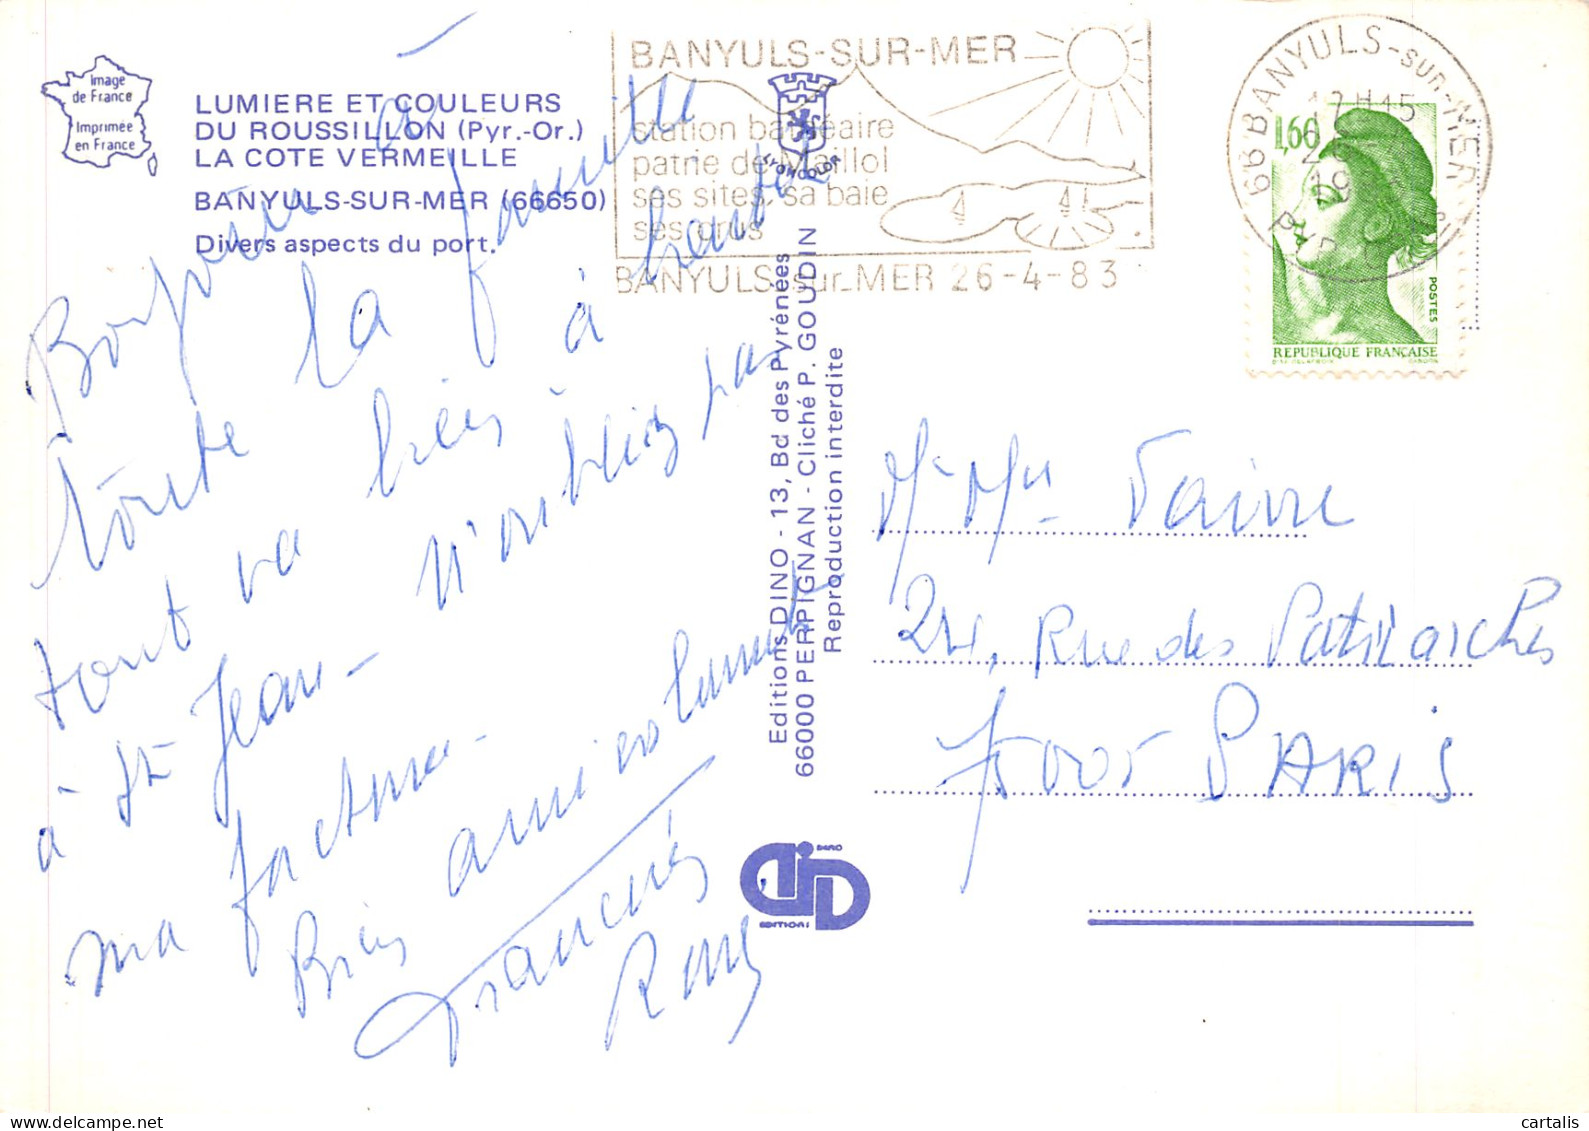 Image
de France
Imprimée
en France
LUMIERE ET COULEURS
DU ROUSSILLON (Pyr.-Or.)
LA COTE VERMEILLE
BANYULS-SUR-MER (66650)
Divers aspects du port.
Bonjour à
toute la famille
tout va bien à
à St Jean - N'oubliez pas
ma facture -
Bien amicalement
LYONCOLOR
BANYULS-SUR-MER
station balnéaire
patrie de Maillol
ses sites, sa baie
ses crus
BANYULS-sur-MER 26-4-83
66 BANYULS-sur-MER
17H15
1,60
POSTES
REPUBLIQUE FRANÇAISE
Editions DINO - 13, Bd des Pyrénées
66000 PERPIGNAN - Cliché P. GOUDIN
Reproduction interdite
Mr Mme Faivre
24, Rue des Patriarches
75005 PARIS
DINO
EDITIONS
cartalis